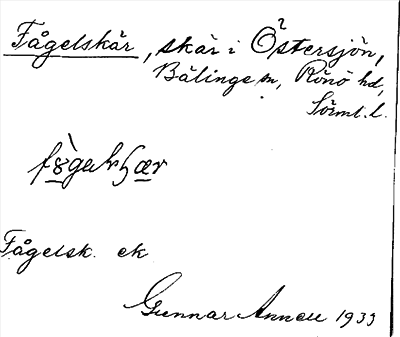 Fågelskär, skär i Östersjön,
?
Bälinge sn, Rönö hd,
Sörml. l.
Fågelsk. ek
Gunnar Annell 1933